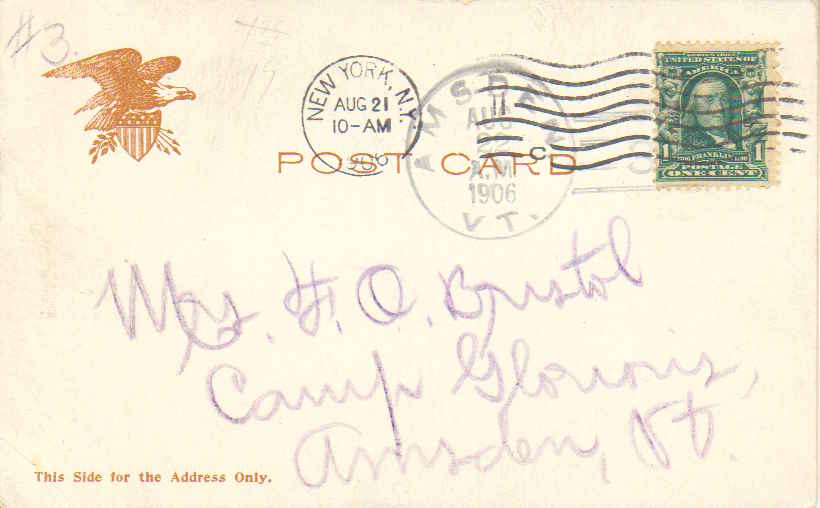 #3.
NEW YORK, N.Y.
AUG 21
10-AM
1906
AMSDEN
AUG
22
A.M
1906
VT.
C
UNITED STATES OF
AMERICA
1 FRANKLIN 1
POSTAGE
ONE CENT
POST CARD
Mrs. H. O. Bristol
Camp Glorious,
Amsden, Vt.
This Side for the Address Only.